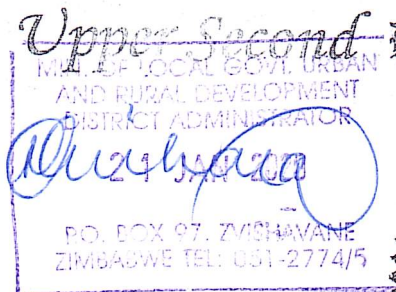 Upper Second
MIN. OF LOCAL GOVT. URBAN
AND RURAL DEVELOPMENT
DISTRICT ADMINISTRATOR
21 JAN
P.O. BOX 97, ZVISHAVANE
ZIMBABWE TEL: 051-2774/5